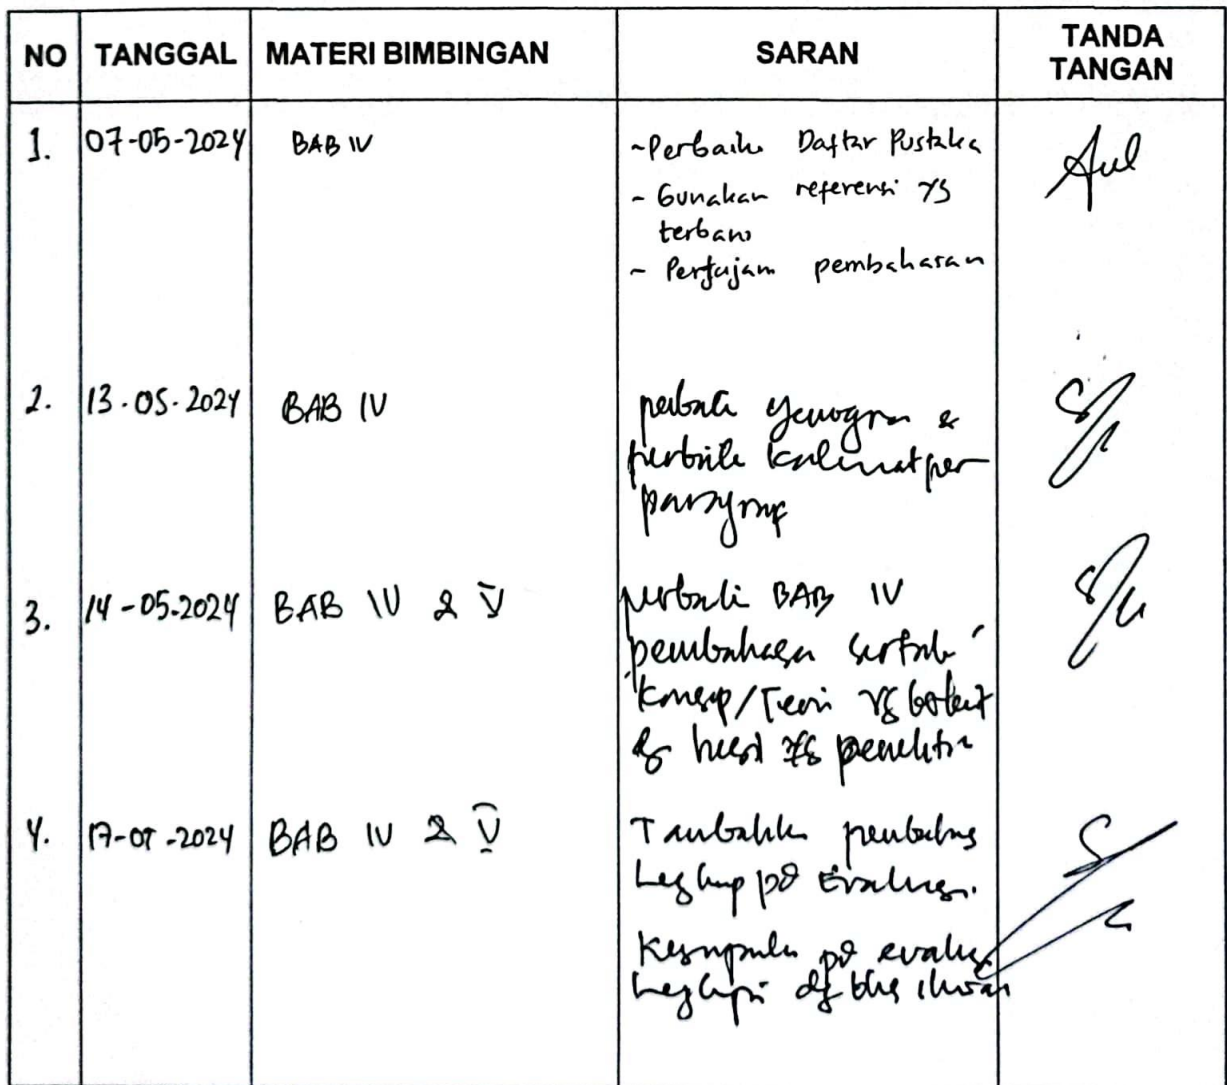 NO TANGGAL MATERI BIMBINGAN SARAN TANDA TANGAN
1. 07-05-2024 BAB IV ~Perbaiki Daftar Pustaka
- Gunakan referensi yg
terbaru
~ Pertajam pembahasan
2. 13.05.2024 BAB IV perbaiki genogram &
perbaiki kalimat per
paragraf
3. 14-05-2024 BAB IV & V perbaiki BAB IV
pembahasan sertakan
konsep/Teori yg
penelitian
4. 17-05-2024 BAB IV & V Tambahkan pembahas
pd Evaluasi.
Kesimpulan pd evaluasi